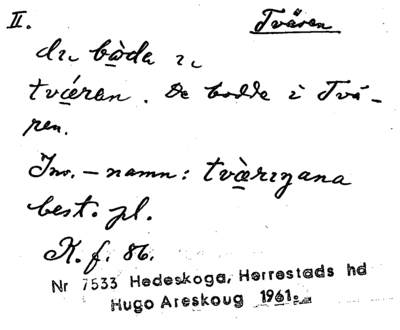 II. Tvären
di bòda i
tvǽren. De bodde i Tvä-
ren.
Inv.-namn: tvæ̀riŋana
best. pl.
K. f. 86.
Nr 7533 Hedeskoga, Herrestads hd
Hugo Areskoug 1961.